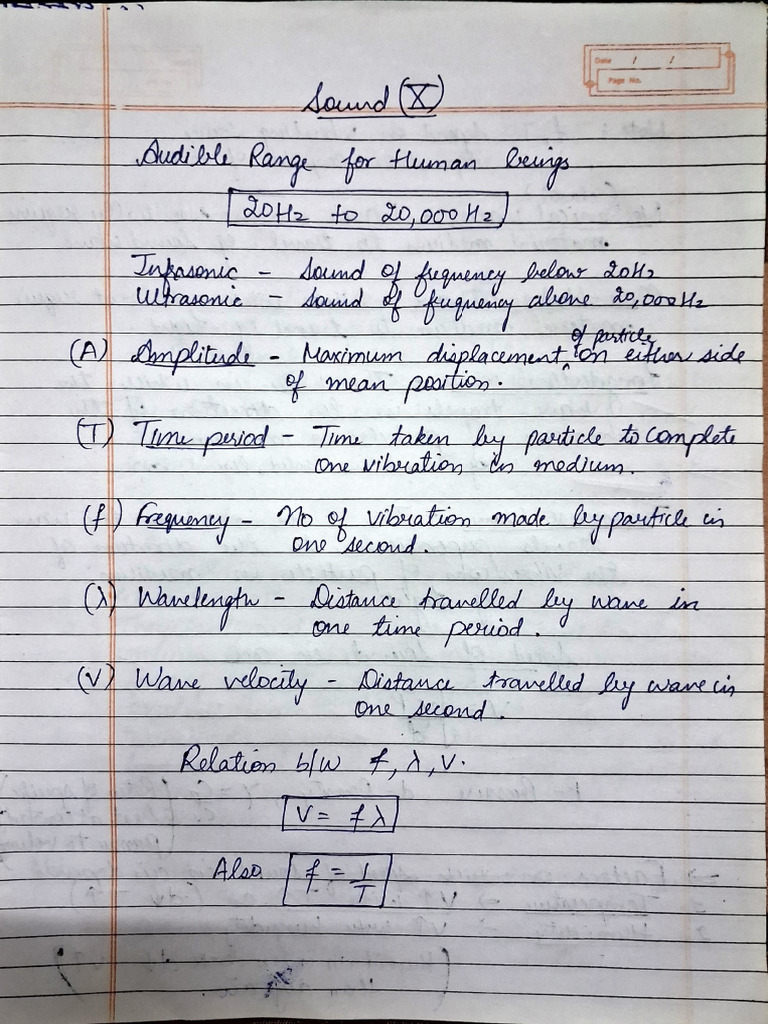 Date / /
Page No.
Sound (X)
Audible Range for Human beings
20Hz to 20,000Hz
Infrasonic - Sound of frequency below 20Hz
Ultrasonic - Sound of frequency above 20,000Hz
(A) Amplitude - Maximum displacement of particle on either side
of mean position.
(T) Time period - Time taken by particle to complete
one vibration in medium.
(f) Frequency - No of vibration made by particle in
one second.
(λ) Wavelength - Distance travelled by wave in
one time period.
(V) Wave velocity - Distance travelled by wave in
one second.
Relation b/w f, λ, V.
V = fλ
Also f = 1/T